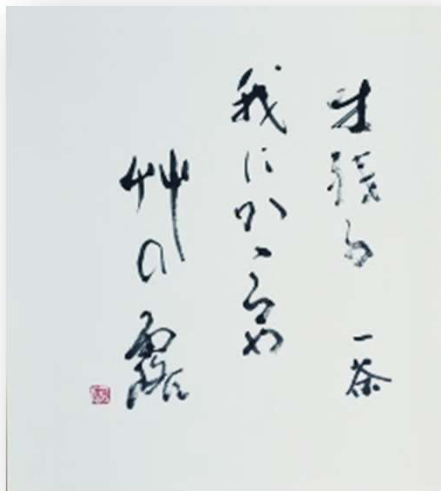 生残る 一茶
我にかゝるや
艸の露